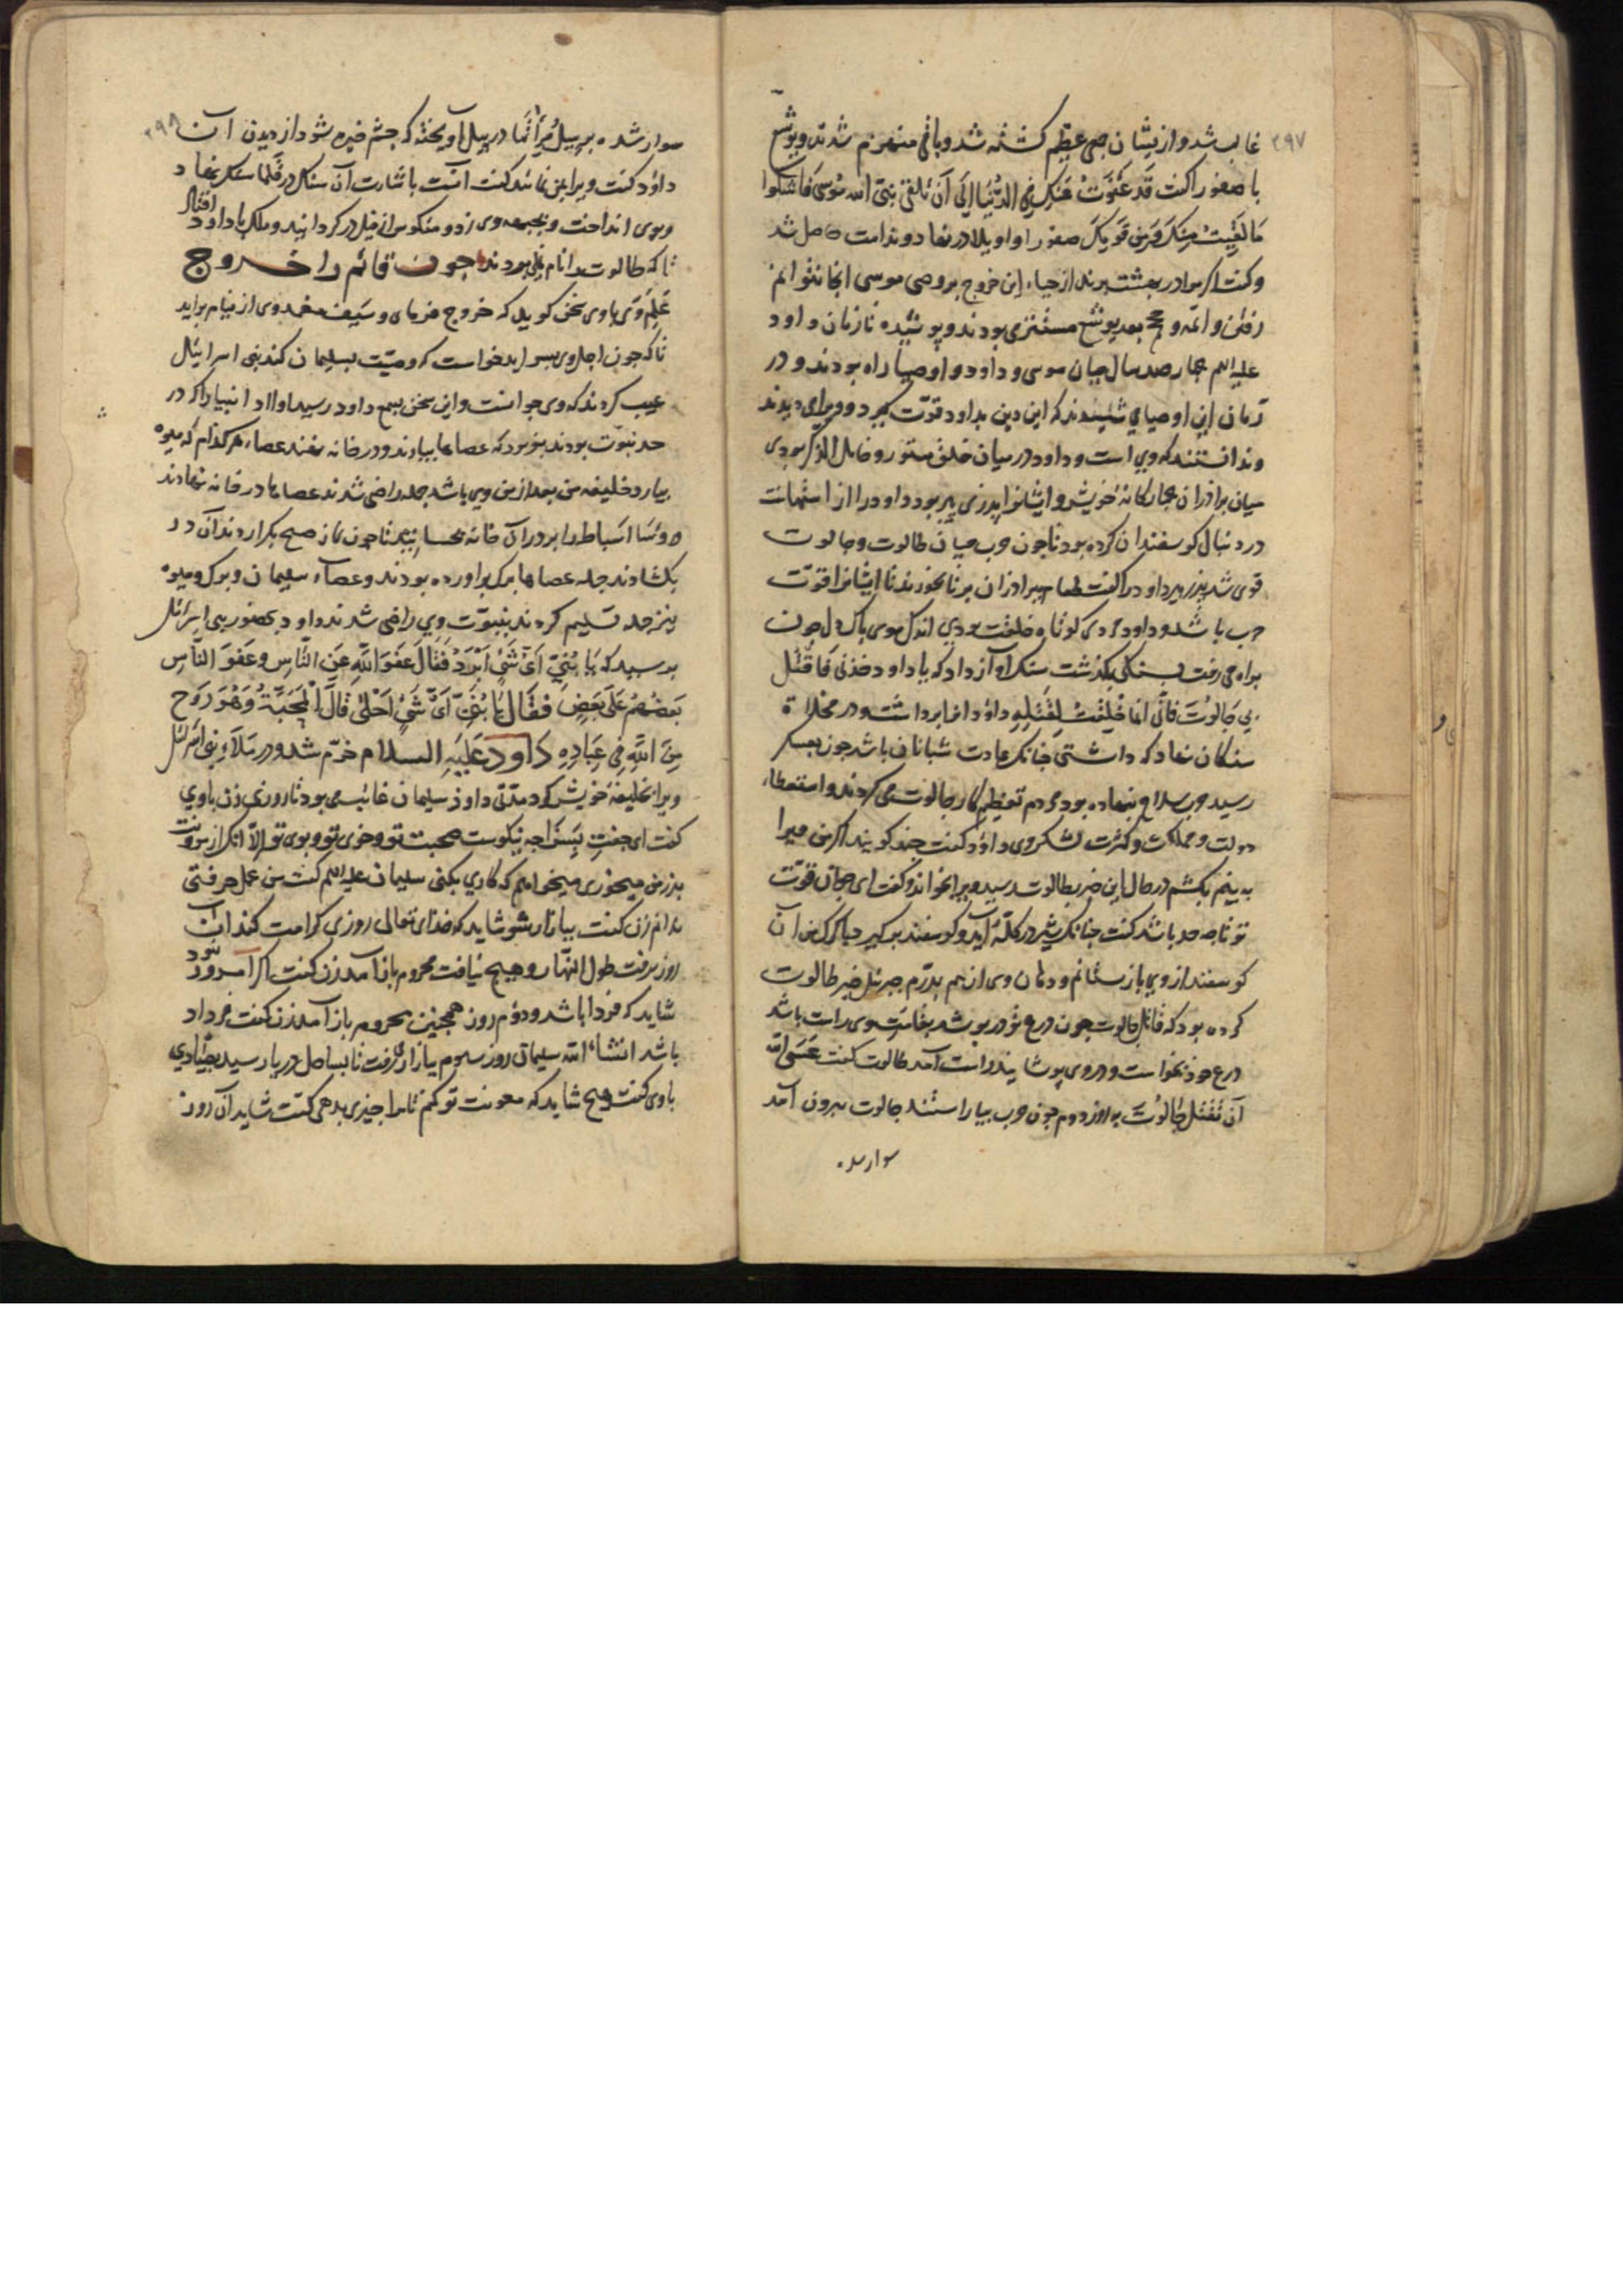 ۲۹۷
غالب شد و ازیشان جمعی عظیم کشته شد و باقی منهزم شدند و یوشع
با صفورا کفت قد عفوت عنک فی الدنیا الی ان نلقی نبی الله موسی فاشکوا
ما لقیت منک و من قومک صفورا واویلا در نهاد و ندامت حاصل شد
و کفت اکر مرا در بهشت برند از حیاء این خروج بر وصی موسی انجا نتوانم
رفتن و ائمه و حجج بعد یوشع مستتری بودند و پوشیده تا زمان داود
علیه السلم چهار صد سال میان موسی و داود و اوصیا راه بودند و در
زمان این اوصیای شنیدند که این دین بداود قوت کیرد و ویرا می دیدند
و ندانستند که وی است و داود در میان خلق مستور و خامل الذکر بودی
میان برادران چهارکانه خویش و ایشانرا پدری پیر بود داود را از استهانت
در دنبال کوسفندان کرده بود تا چون حرب میان طالوت و جالوت
قوی شد پدر پیر داود را کفت طعام ببرادران بر تا بخورند تا ایشانرا قوت
حرب باشد و داود مردی کوتاه خلقت بودی اندک موی پاک دل چون
براه می رفت بسنکی بکذشت سنک آواز داد که یا داود خذنی فاقتل
بی جالوت فانی انما خلقت لقتله داود انرا برداشت و در مخلاة
سنکان نهاد که داشتی چنانک عادت شبانان باشد چون بعسکر
رسید حرب سلاح بنهاده بود مردم تعظیم کار جالوت می کردند و استعطاء
دولت و مملکت و کثرت لشکر وی داود کفت چند کویند اکر من ویرا
به بینم بکشم در حال این خبر بطالوت رسید ویرا بخواند و کفت ای جوان قوت
تو تا چه حد باشد کفت چنانک شیر در کله آید و کوسفند بر کیرد با کرک من آن
کوسفند از وی باز ستانم و دهان وی از هم بدرم جبرئل خبر طالوت
کرده بود که قاتل جالوت چون درع تو در پوشد بقامت وی راست باشد
درع خود بخواست و در وی پوشانید راست آمد طالوت کفت عسی الله
ان نقتل جالوت به روز دوم چون حرب بیاراستند جالوت بیرون آمد
سوار شده
۲۹۸
سوار شده بر پیل آویخته که چشم خیره شود از دیدن آن
داود کفت ویرا بمن نمائید کفت آنست باشارت آن سنک در فلماسنک نهاد
و بوی انداخت و بجبهه وی زد و منکوس از فیل در کردانید و ملک با داود
افتاد
تا که طالوت را نام نمی بردند چون قائم را خروج
علم وی با وی سخن کوید که خروج فرمای و سیف مغمد وی از نیام براید
تا که چون اجل وی بسر اید خواست که وصیت بسلیمان کند بنی اسرائیل
عیب کردند که وی جوانست و این سخن بسمع داود رسید اولاد انبیا را که در
حد نبوت بودند بفرمود که عصاها بیاورند و در خانه نهند عصاء هر کدام که میوه
بیارد خلیفه من بعد از من وی باشد جمله راضی شدند عصاها در خانه نهادند
و رؤسا اسباط را بر در آن خانه بحسبانیدند تا چون نماز صبح بکزاردند آن در
بکشادند جمله عصاها برک براورده بودند و عصاء سلیمان و برک و میوه
نیز جمله تسلیم کردند بنبوت وی راضی شدند داود بحضور بنی اسرائل
پرسید که یا بنی ای شئ ابرد فقال عفو الله عن الناس و عفو الناس
بعضهم علی بعض فقال یا بنی ای شئ احلی قال المحبة و هو روح
من الله فی عباده داود علیه السلام خرم شد و در ملاء بنی اسرائل
ویرا خلیفه خویش کرد مدتی داود سلیمان غائب می بود تا روزی زن با وی
کفت ای جفت بسزا چه نیکوست صحبت تو و خوی تو و بوی تو الا انک از مونت
پدر من میخوری میخواهم که کاری بکنی سلیمان علیه السلم کفت من عمل حرفتی
ندانم زن کفت ببازار شو شاید که خدای تعالی روزی کرامت کند آن
روز برفت طول النهار و هیچ نیافت محروم باز آمد زن کفت اکر امروز
نبود
شاید که فردا باشد و دوم روز همچنین محروم باز آمد زن کفت فردا
باشد انشاء الله سلیمان روز سوم ببازار رفت تا بساحل دریا رسید بصیادی
با وی کفت هیچ شاید که معونت تو کنم تا مرا چیزی بدهی کفت شاید آن روز